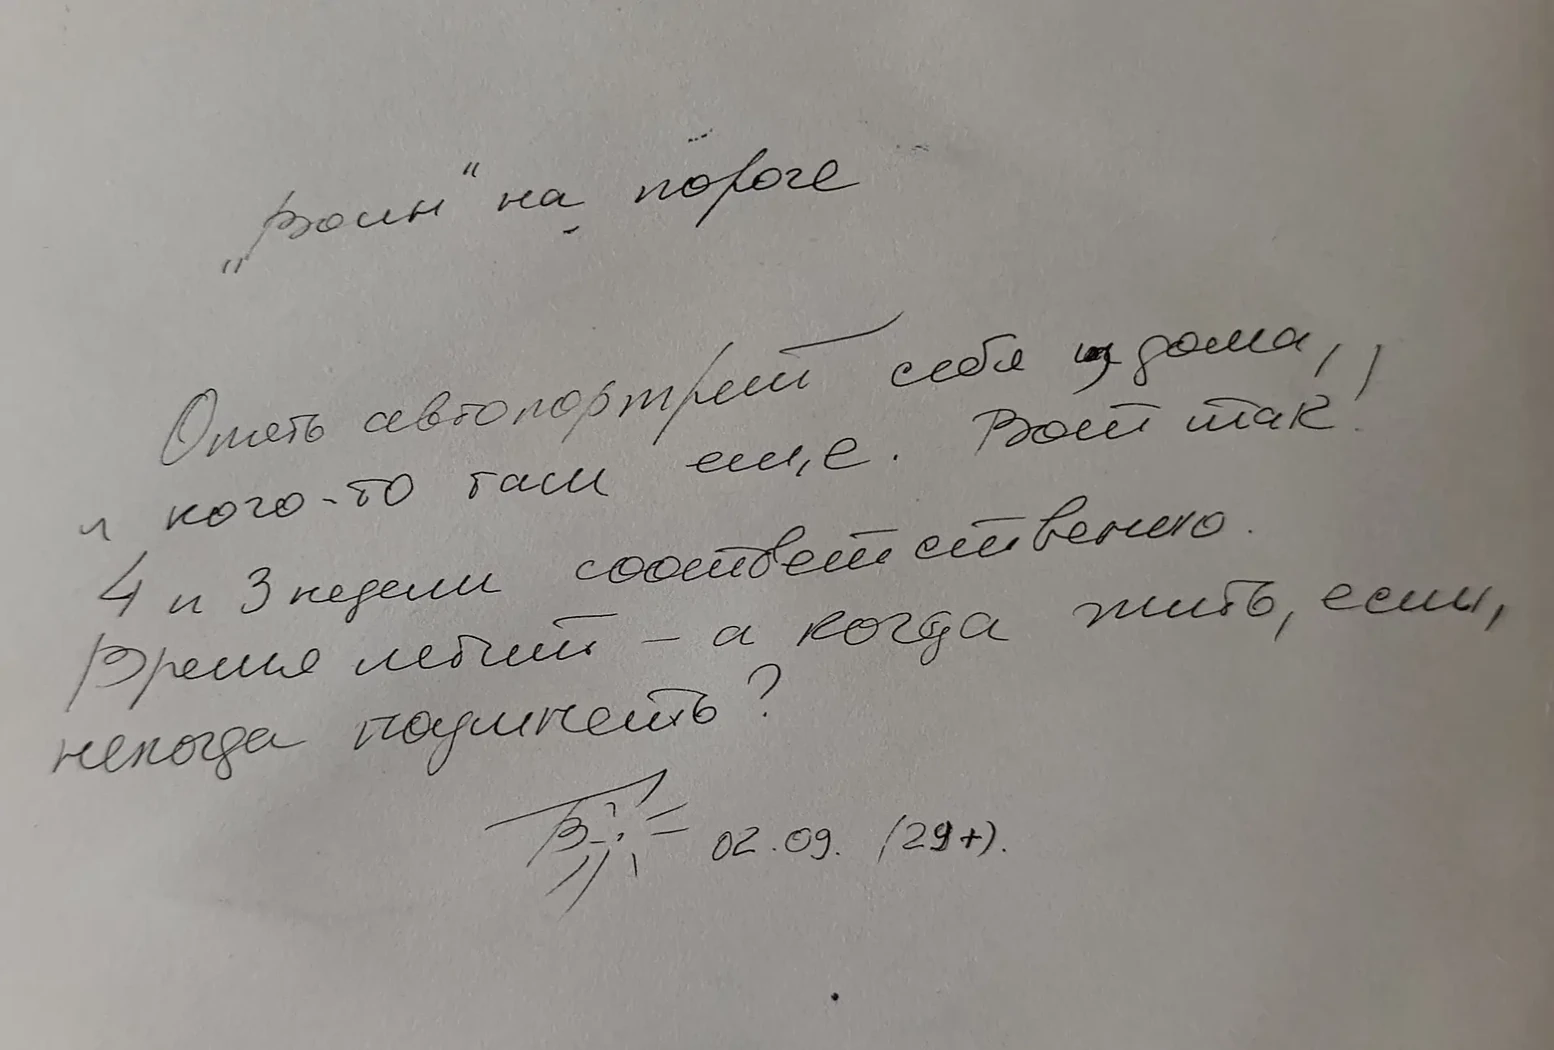 „Воин“ на пороге
Опять автопортрет себя из дома,
и кого-то там еще. Вот так!
4 и 3 недели соответственно.
Время летит – а когда жить, если,
некогда поумнеть?
02.09. (29+).